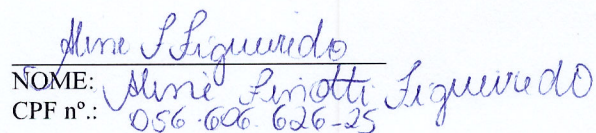 Aline S Figueiredo
NOME: Aline Finotti Figueiredo
CPF nº.: 056.606.626-25